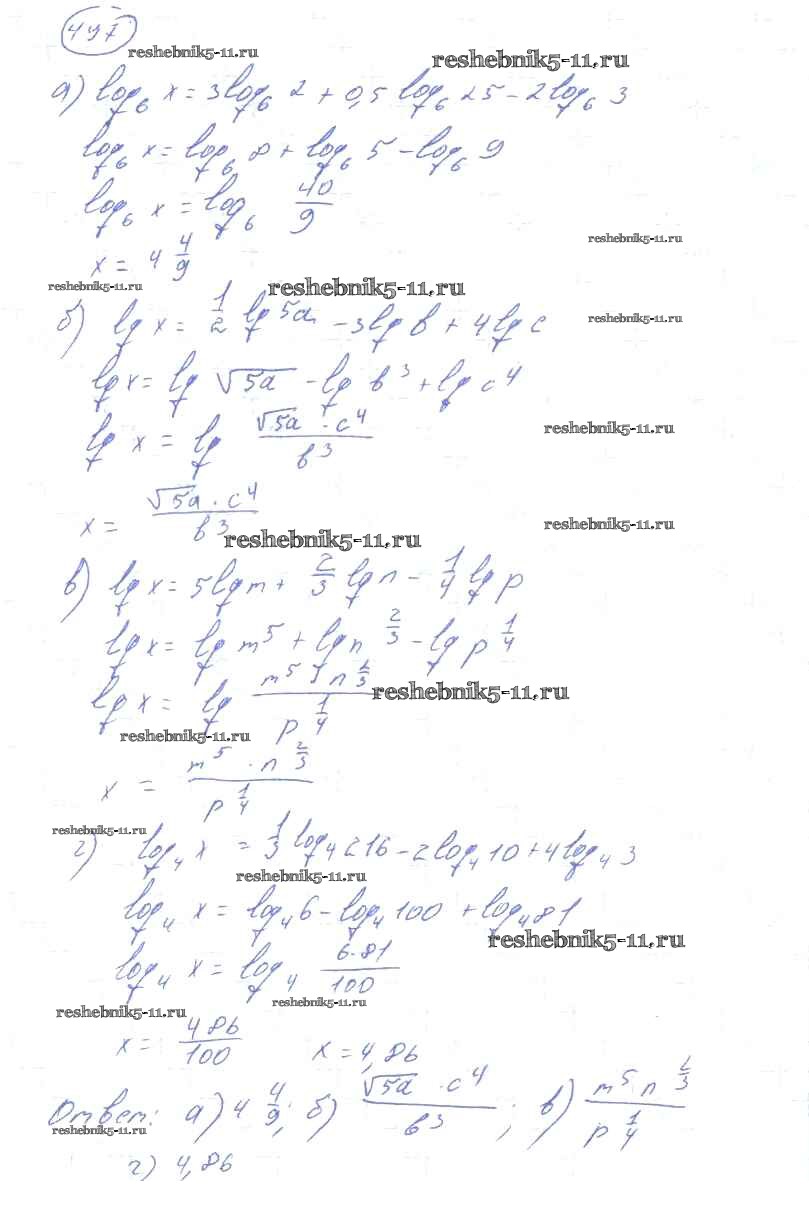 497
reshebnik5-11.ru reshebnik5-11.ru
а) log₆ x = 3log₆ 2 + 0,5 log₆ 25 - 2log₆ 3
log₆ x = log₆ 8 + log₆ 5 - log₆ 9
log₆ x = log₆ 40/9
reshebnik5-11.ru
x = 4 4/9
reshebnik5-11.ru reshebnik5-11.ru
б) lg x = 1/2 lg 5a - 3lg b + 4lg c
reshebnik5-11.ru
lg x = lg √5a - lg b³ + lg c⁴
lg x = lg (√5a · c⁴)/b³
reshebnik5-11.ru
x = (√5a · c⁴)/b³
reshebnik5-11.ru
reshebnik5-11.ru
в) lg x = 5lg m + 2/3 lg n - 1/4 lg p
lg x = lg m⁵ + lg n^(2/3) - lg p^(1/4)
lg x = lg (m⁵ · n^(2/3))/p^(1/4)
reshebnik5-11.ru
reshebnik5-11.ru
x = (m⁵ · n^(2/3))/p^(1/4)
reshebnik5-11.ru
г) log₄ x = 1/3 log₄ 216 - 2log₄ 10 + 4log₄ 3
reshebnik5-11.ru
log₄ x = log₄ 6 - log₄ 100 + log₄ 81
reshebnik5-11.ru
log₄ x = log₄ (6·81)/100
reshebnik5-11.ru
reshebnik5-11.ru
x = 486/100 x = 4,86
Ответ: а) 4 4/9; б) (√5a · c⁴)/b³; в) (m⁵ n^(2/3))/p^(1/4)
reshebnik5-11.ru
г) 4,86